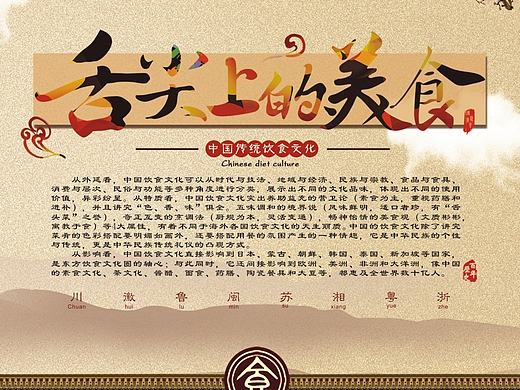 舌尖上的美食
中国传统饮食文化
Chinese diet culture
从外延看，中国饮食文化可以从时代与技法、地域与经济、民族与宗教、食品与食具、
消费与层次、民俗与功能等多种角度进行分类，展示出不同的文化品味，体现出不同的使用
价值，异彩纷呈。从特质看，中国饮食文化突出养助益充的营卫论（素食为主，重视药膳和
进补），并且讲究“色、香、味”俱全。五味调和的境界说（风味鲜明，适口者珍，有“舌
头菜”之誉），奇正互变的烹调法（厨规为本，灵活变通），畅神怡情的美食观（文质彬彬，
寓教于食）等4大属性，有着不同于海外各国饮食文化的天生丽质。中国的饮食文化除了讲究
菜肴的色彩搭配要明媚如画外，还要搭配用餐的氛围产生的一种情趣，它是中华民族的个性
与传统，更是中华民族传统礼仪的凸现方式。
从影响看，中国饮食文化直接影响到日本、蒙古、朝鲜、韩国、泰国、新加坡等国家，
是东方饮食文化圈的轴心；与此同时，它还间接影响到欧洲、美洲、非洲和大洋洲，像中国
的素食文化、茶文化、酱醋、面食、药膳、陶瓷餐具和大豆等，都惠及全世界数十亿人。
川 徽 鲁 闽 苏 湘 粤 浙
Chuan hui lu min su xiang yue zhe
食